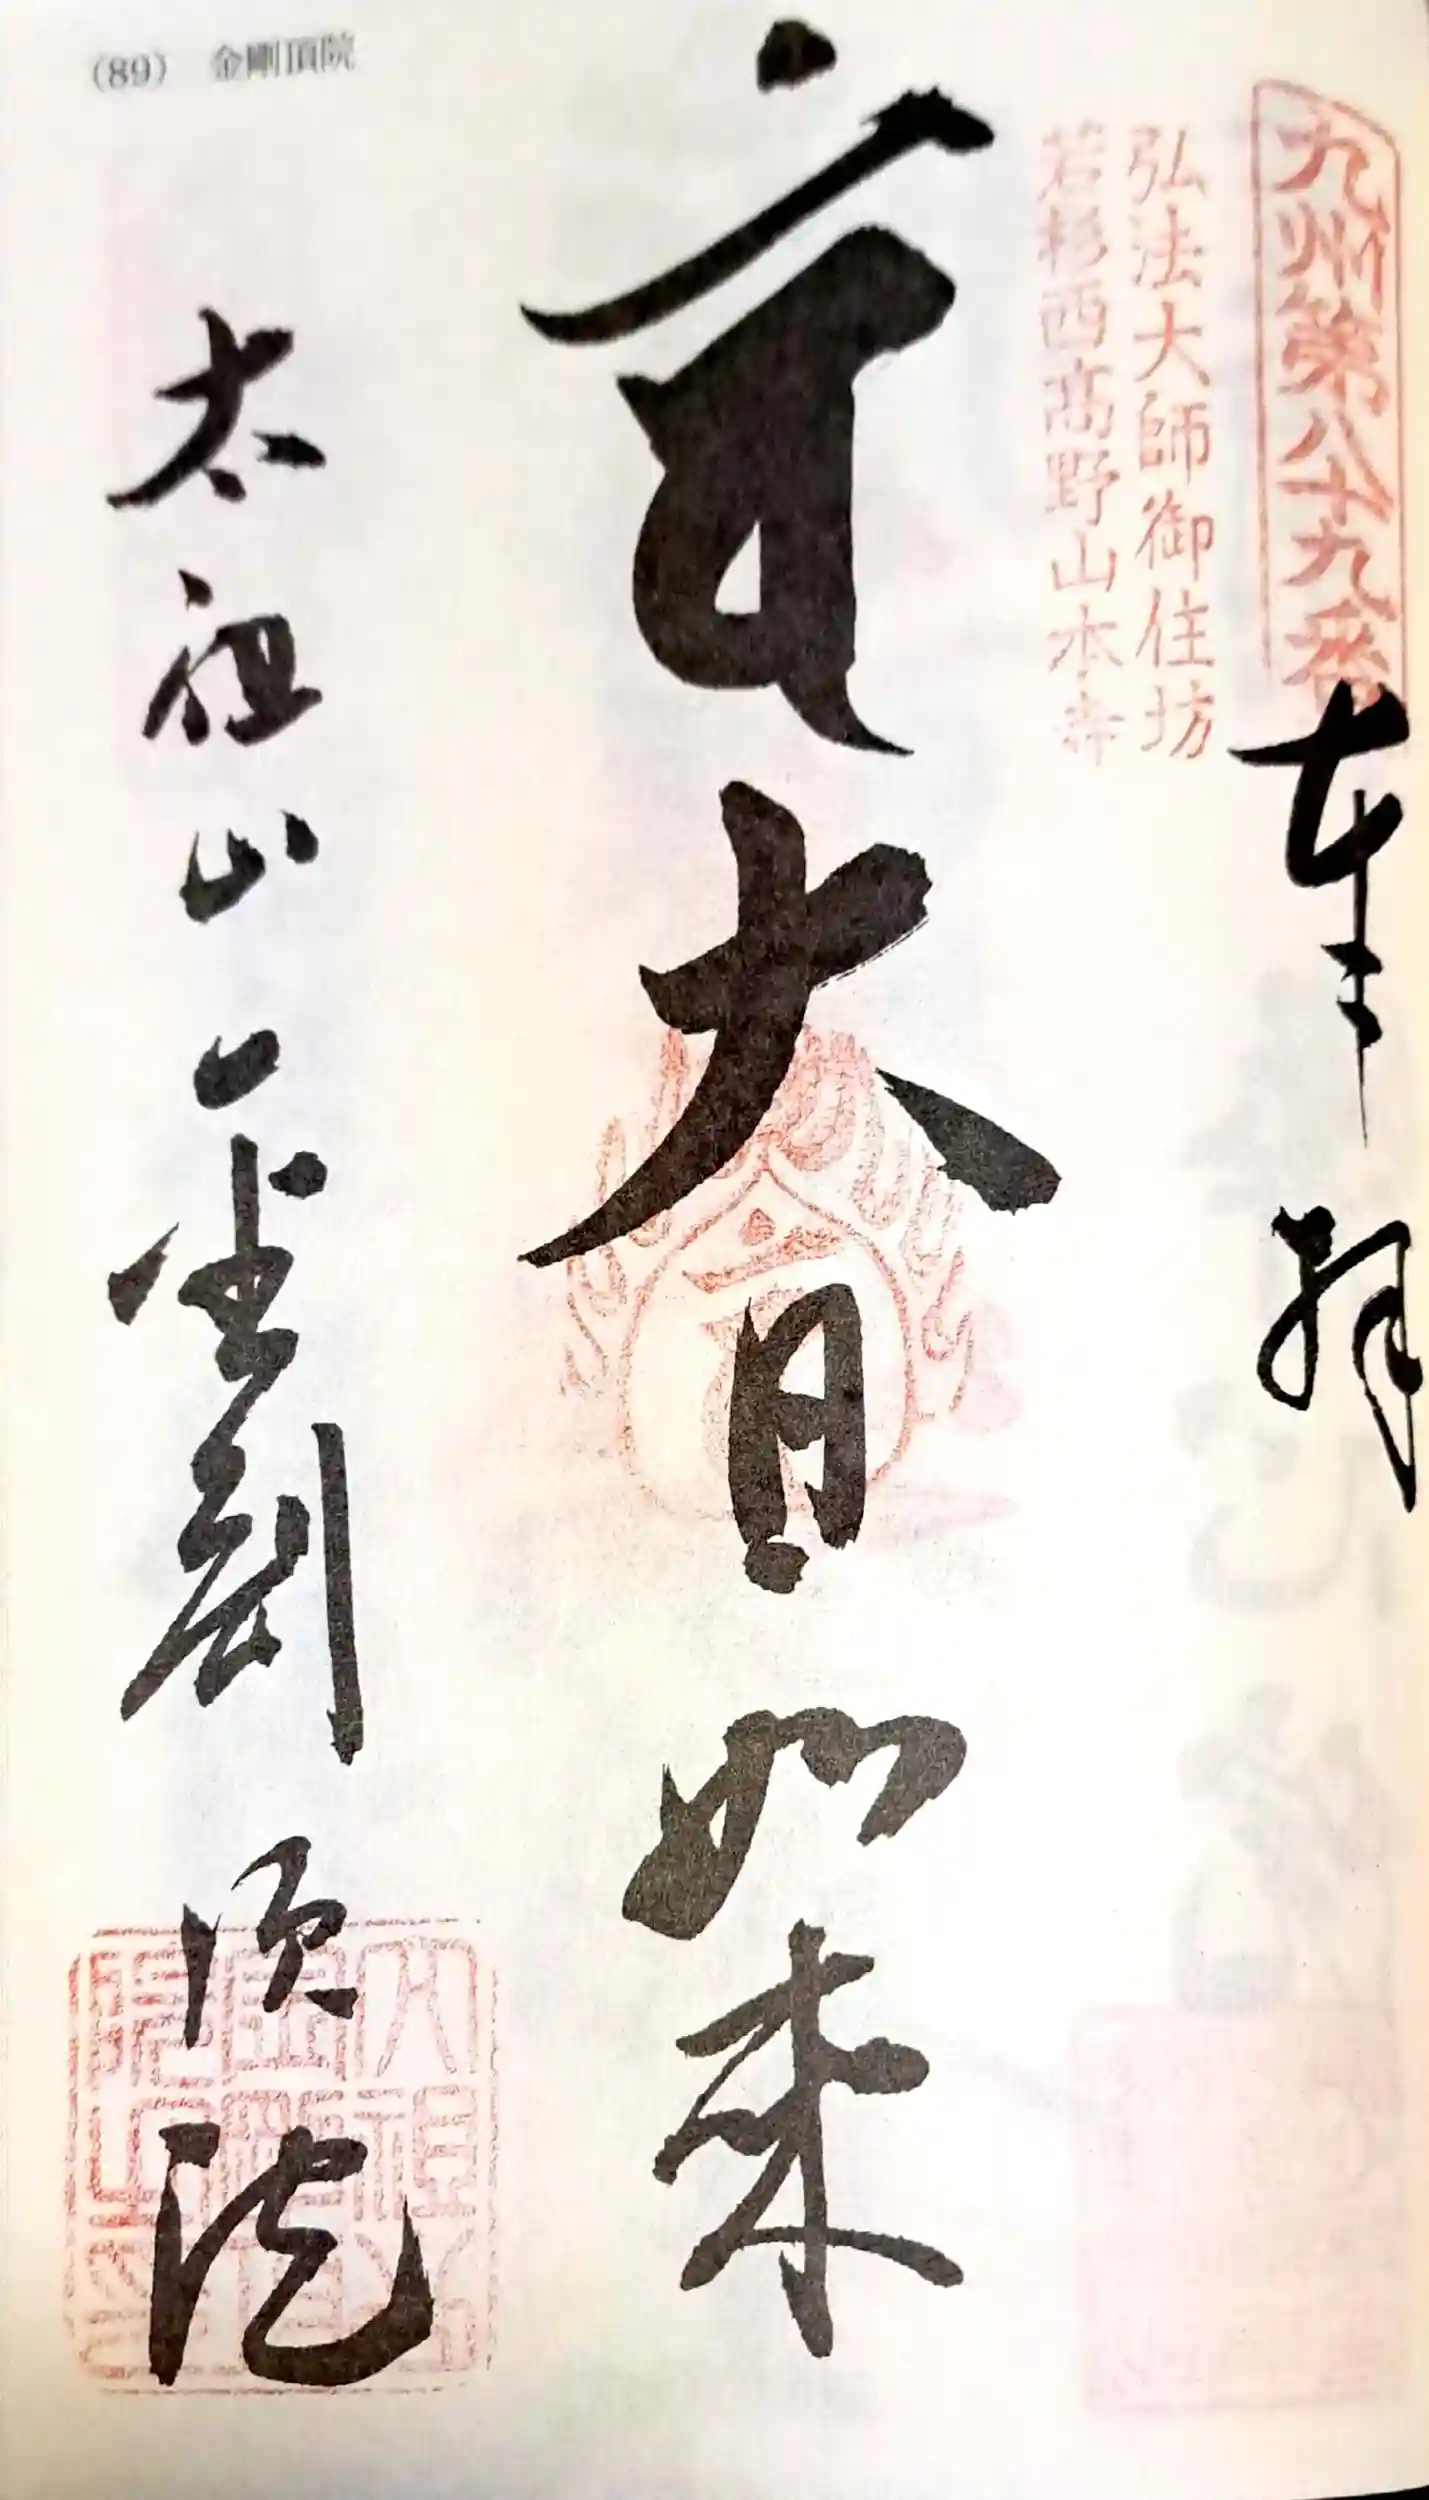 (89) 金剛頂院
九州第八十九番
奉拝
弘法大師御住坊
若杉西高野山本寺
大日如来
太祖山
金剛頂院